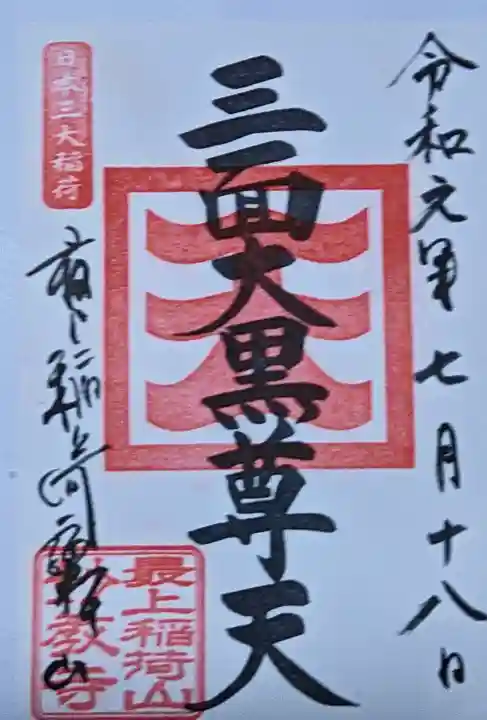 令和元年七月十八日
三面大黒尊天
日本三大稲荷
最上稲荷山
最上稲荷山
妙教寺